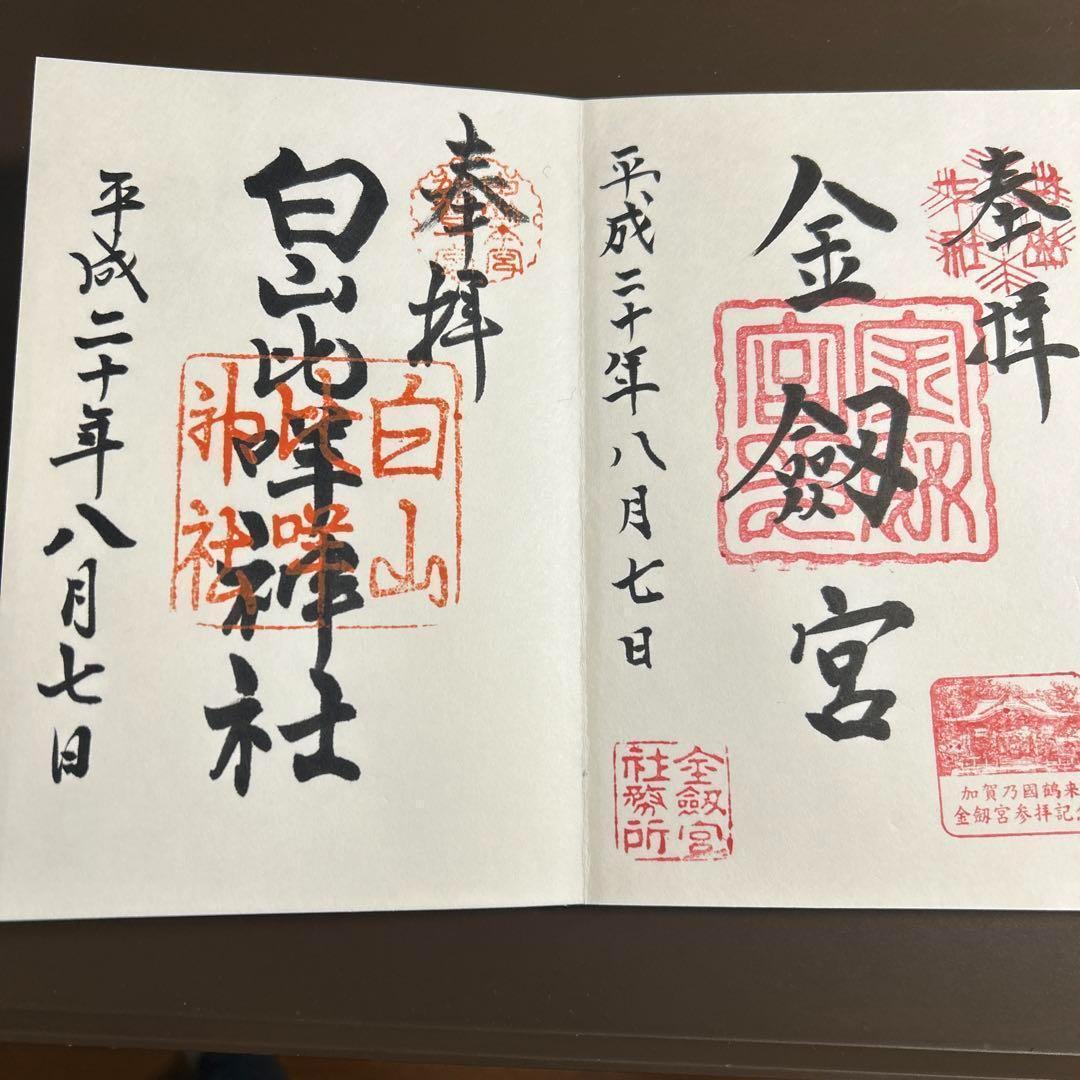 奉拝
金劔宮
平成二十年八月七日
金劔宮
社務所
加賀乃國鶴来
金劔宮参拝記
奉拝
白山比咩神社
白山
比咩
神社
平成二十年八月七日